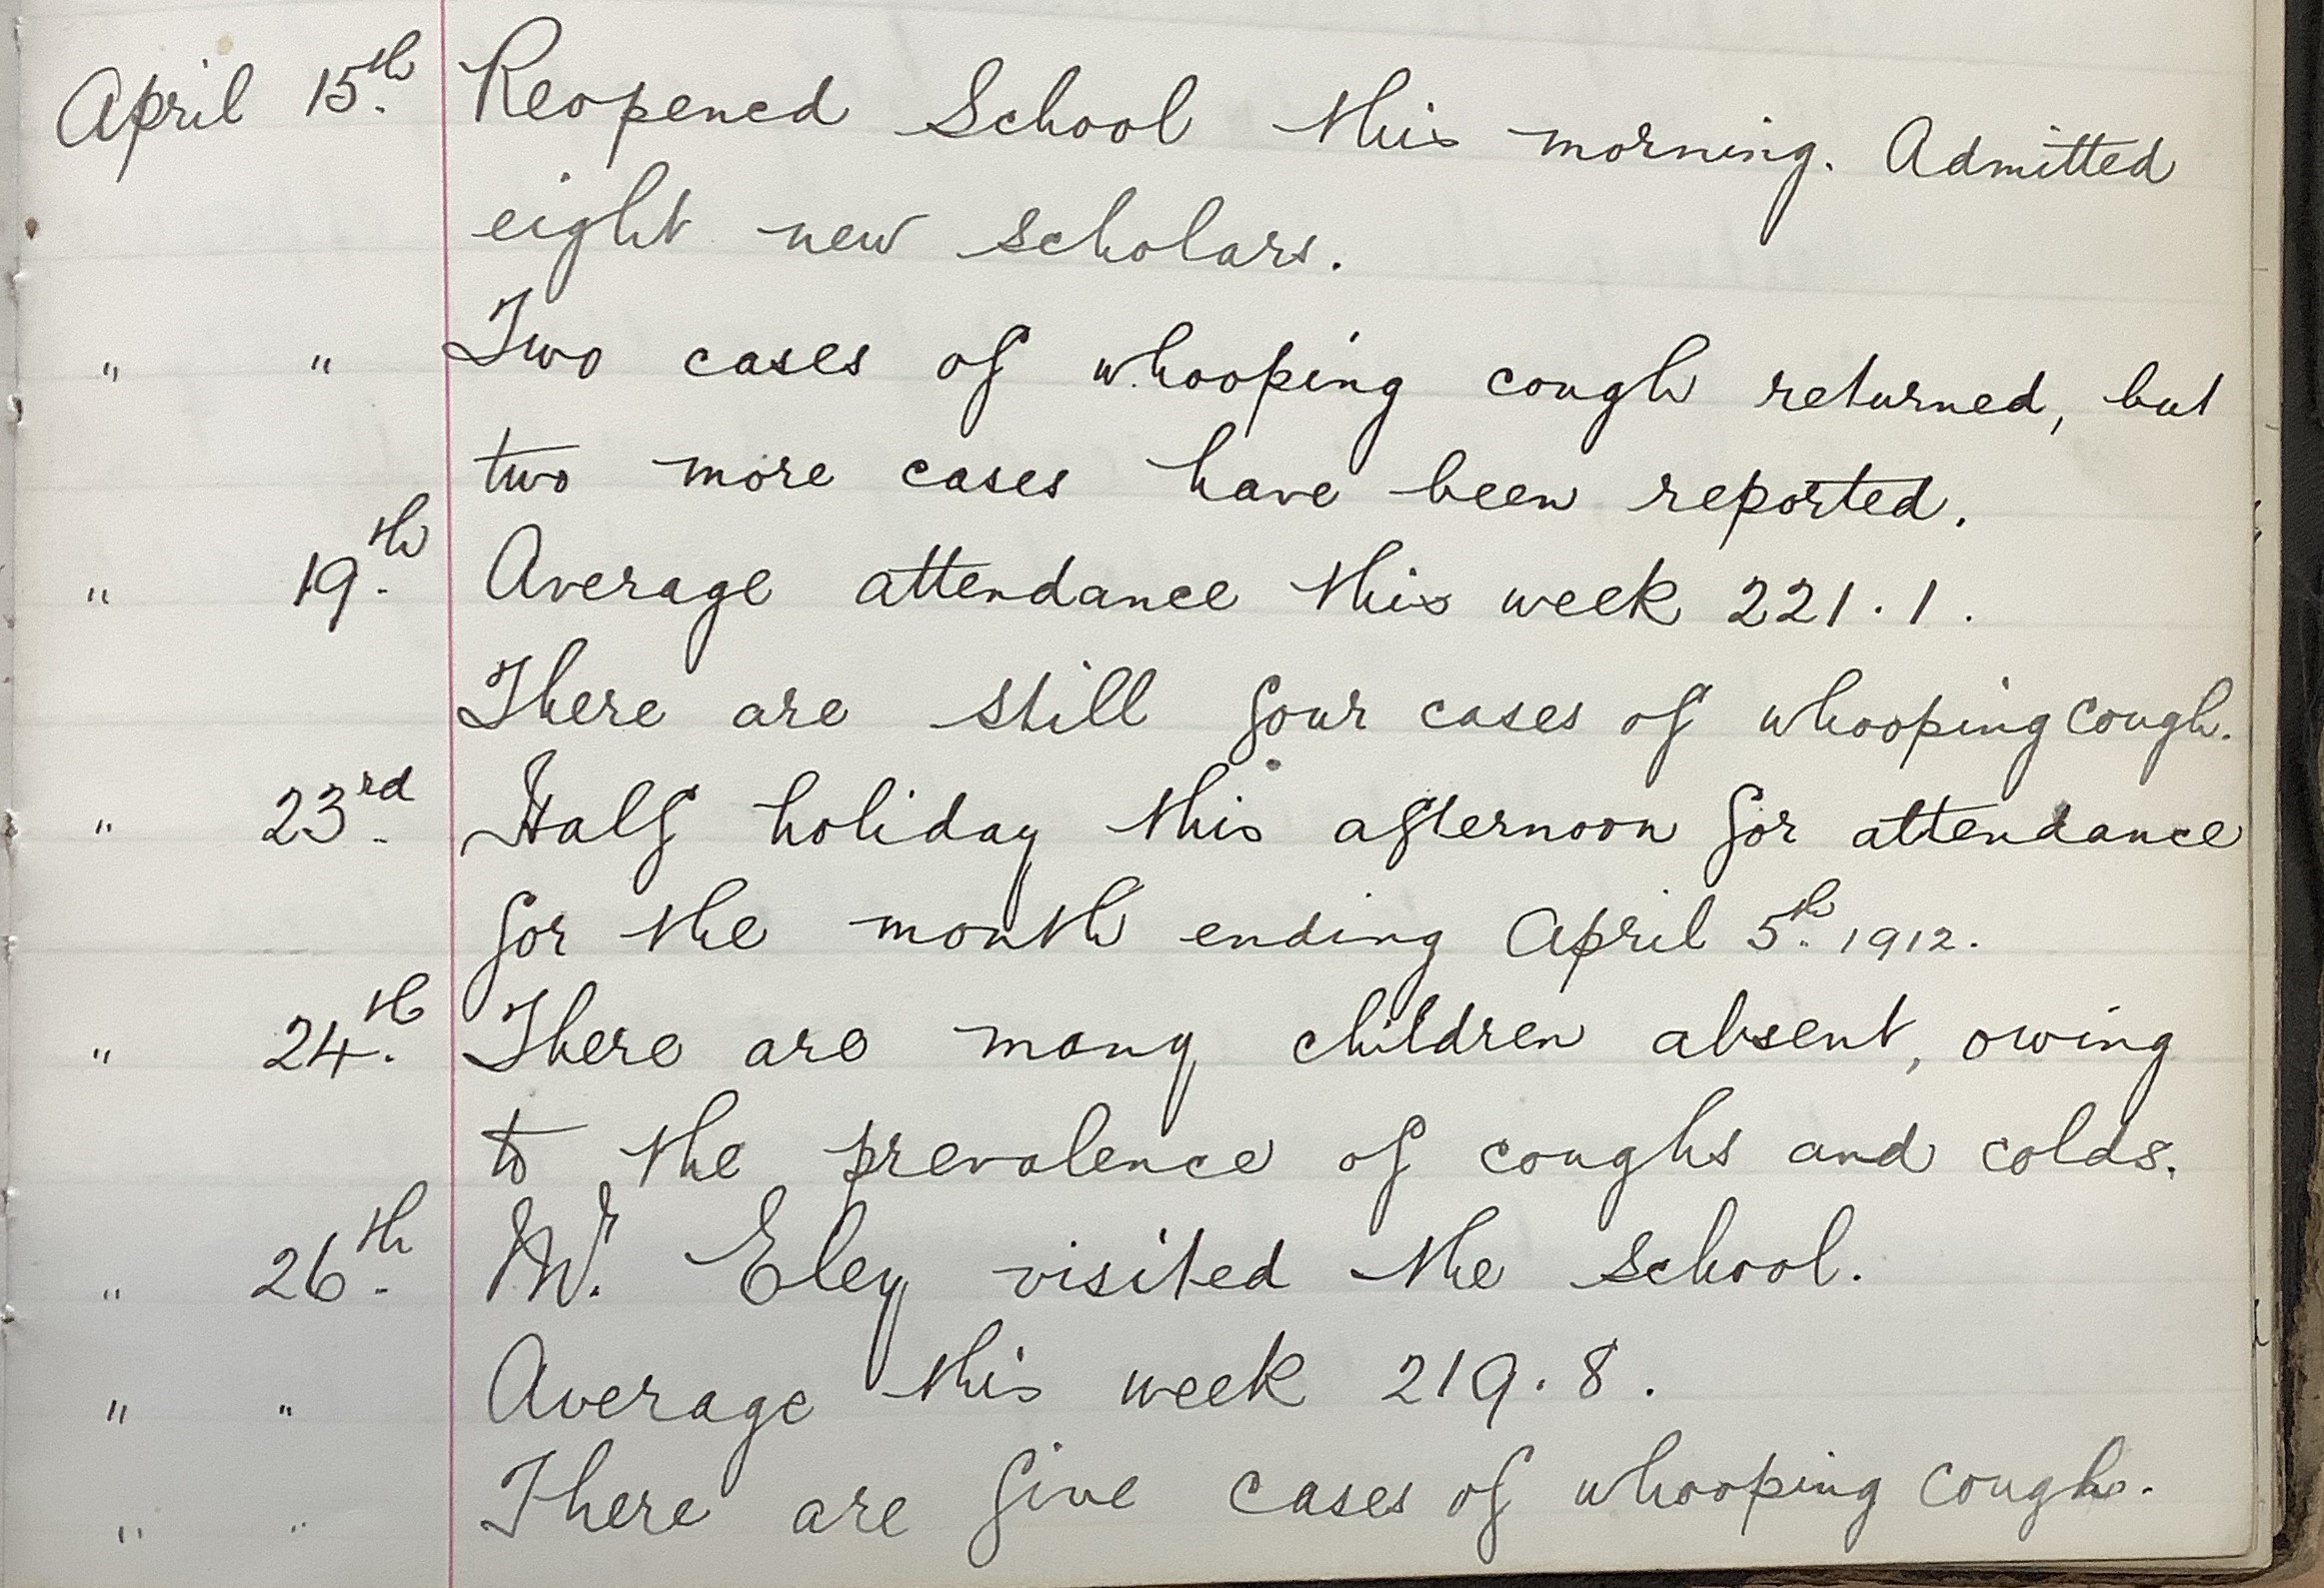 April 15th. Reopened School this morning. Admitted
eight new scholars.
" " Two cases of whooping cough returned, but
two more cases have been reported.
" 19th. Average attendance this week 221.1.
There are still four cases of whooping cough.
" 23rd. Half holiday this afternoon for attendance
for the month ending April 5th. 1912.
" 24th. There are many children absent, owing
to the prevalence of coughs and colds.
" 26th. Mr. Eley visited the school.
" " Average this week 219.8.
" " There are five cases of whooping cough.